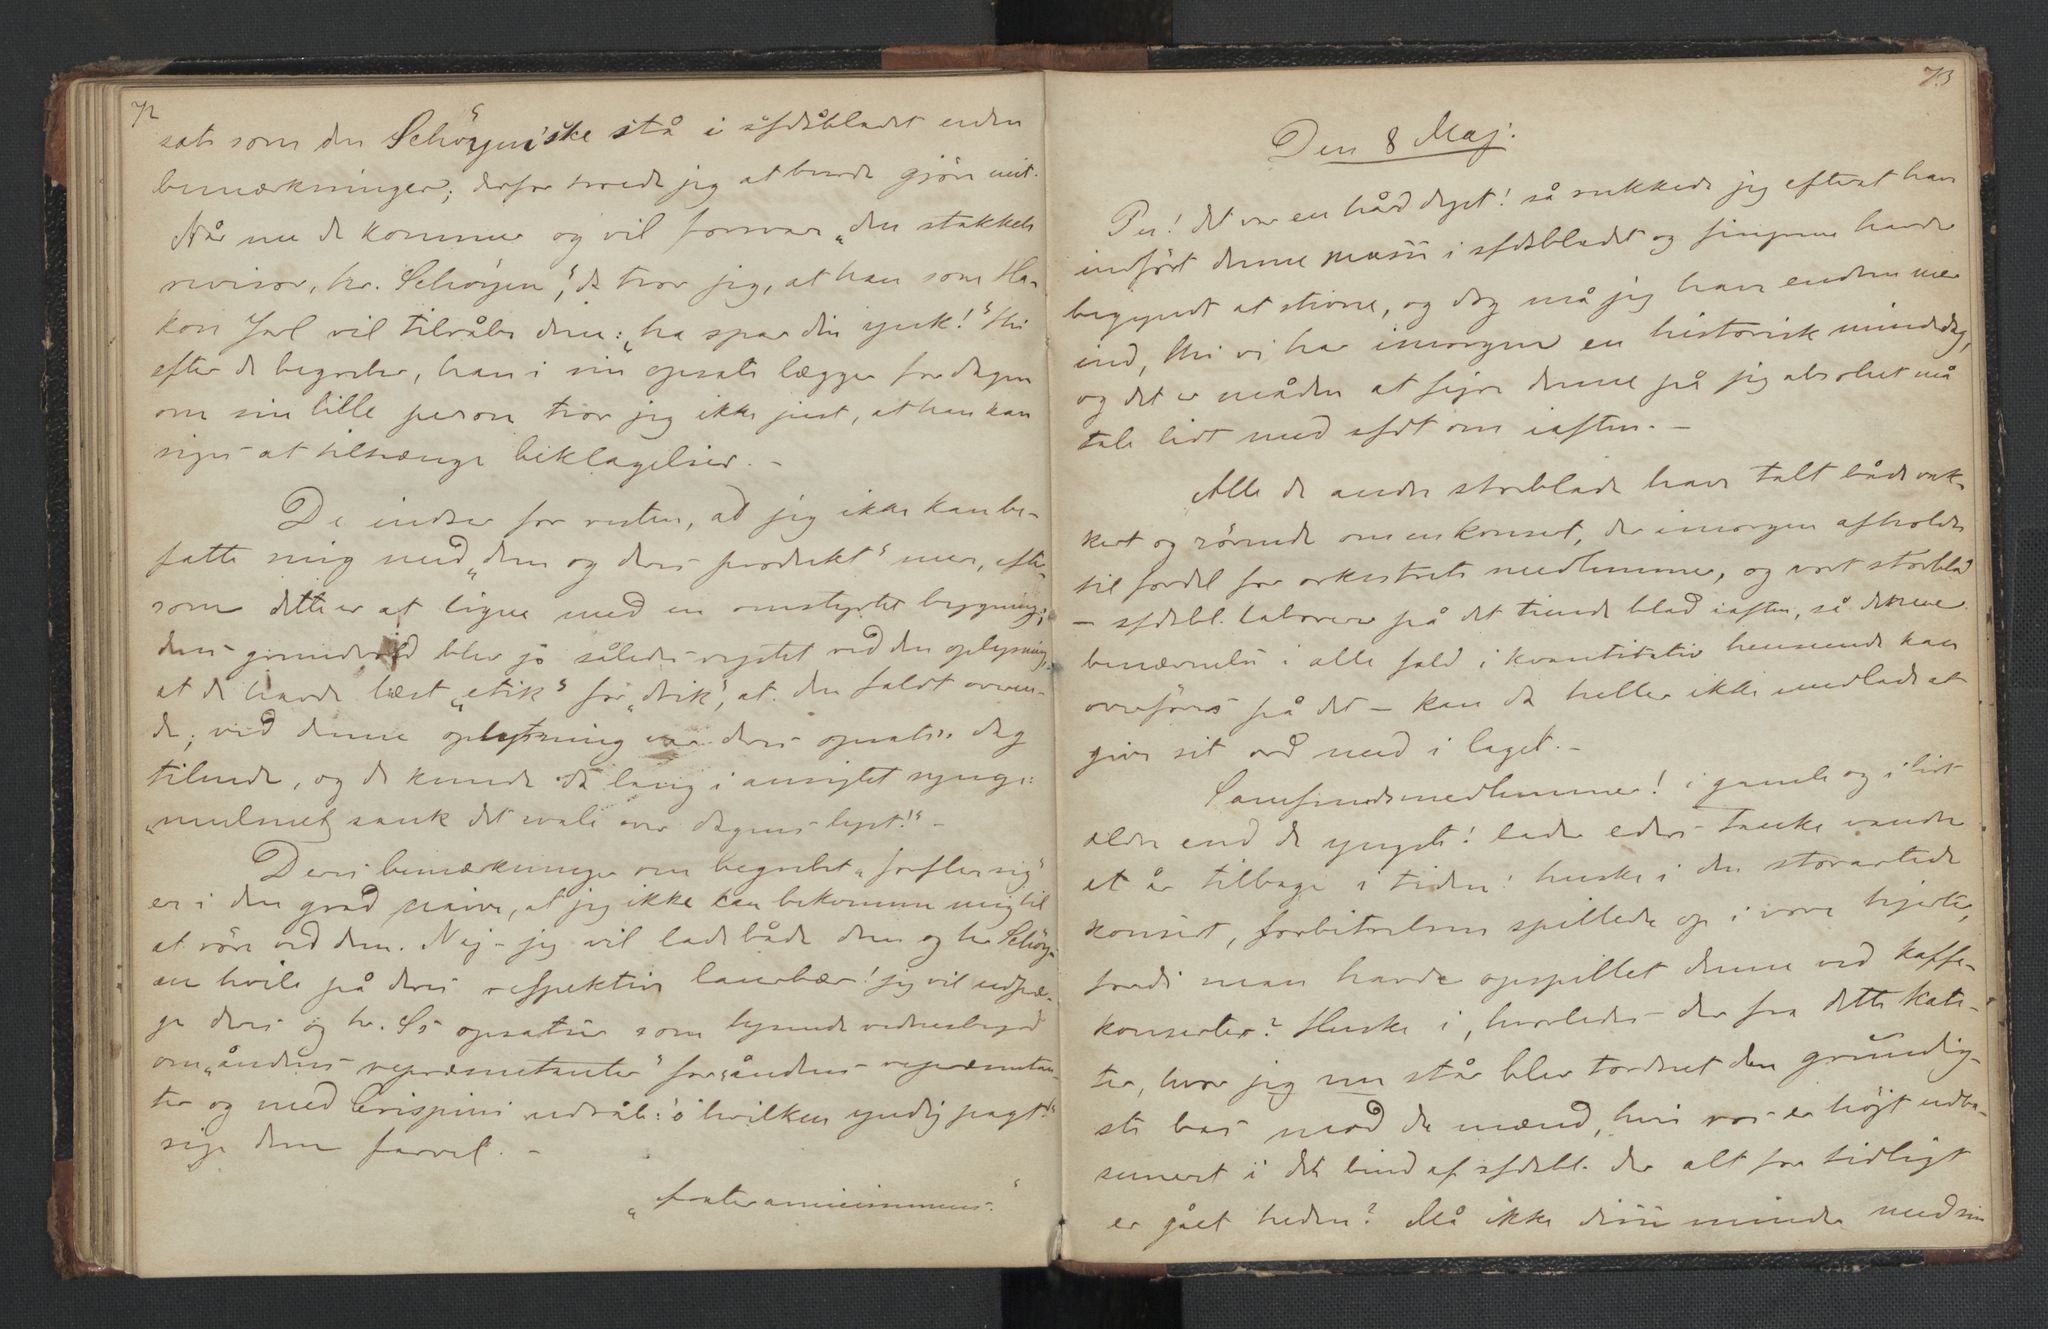 72
sats som den Schøyen'ske stå i sfdsbladet uden
bemærkninger; derfor troede jeg at burde gjöre mit.
Når nu de kommer og vil forsvare „den stakkels
revisor, hr. Schøyen“, så tror jeg, at han som Ha-
kon Jarl vil tilråbe dem: „ha spar din ynk!“ thi
efter de begreber, han i sin opsats lægger for dagen
om sin lille person tror jeg ikke just, at han kan
siges at tiltrænge beklagelser. –
De indser for resten, at jeg ikke kan be-
fatte mig med „dem og deres produkt“ mer, efter-
som dette er at ligne med en omstyrtet bygning;
dens grundvold blev jo således rystet ved den oplysning,
at de havde læst „etik“ for „drik“, at den faldt overen-
de; ved denne oplysning var deres opsats's dag
tilende, og de kunde så lang i ansigtet synge:
„mulmet sank det svale over dagens lyst!“ –
Deres bemærkninger om begrebet „
er i den grad naive, at jeg ikke kan bekomme mig til
at röre ved dem. Nej – jeg vil lade både dem og hr Schöy-
en hvile på deres respektive laurbær! jeg vil udpe-
ge deres og hr. S's opsatser som lysende vidnesbyrd
om „åndens repræsentanter“ for „åndens repræsentan-
ter og med Crispini udråb: „o hvilken yndig pagt!“
sige dem farvel. –
„frater amicissimus.“
73
Den 8 Maj.
Pu! det var en hård dyst! så sukkede jeg efterat have
indfört denne masse i sfdsbladet og fingrene havde
begyndt at stivne, og dog må jeg have endnu mer
ind, thi vi har imorgen en historisk mindedag,
og det er måden at fejre denne på jeg absolut må
tale lidt med sfdt om iaften. –
Alle de andre storblade have talt både vak-
kert og rörende om en konsert, der imorgen afholdes
til fordel for orkestrets medlemmer, og vort storblad
– sfdsbl. laborerer på det tiende blad iaften, så denne
benævnelse i alle fald i kvantitativ henseende kan
overføres på det – kan da heller ikke undlade at
give sit ord med i laget. –
Samfundsmedlemmer! i gamle og i lidt
ældre end de yngste! lader eders tanke vandre
et år tilbage i tiden! huske i den storartede
konsert, forbitrelsen spillede op i vore hjerter,
fordi man havde opspillet denne ved kaffe-
konserter? Huske i, hvorledes der fra dette kate-
ter, hvor jeg nu står blev tordnet den grundig-
ste bas mod de mænd, hvis ros er højt udba-
suneret i det bind af sfdsbl. der alt for tidligt
er gået heden? Må ikke disse minder med sin